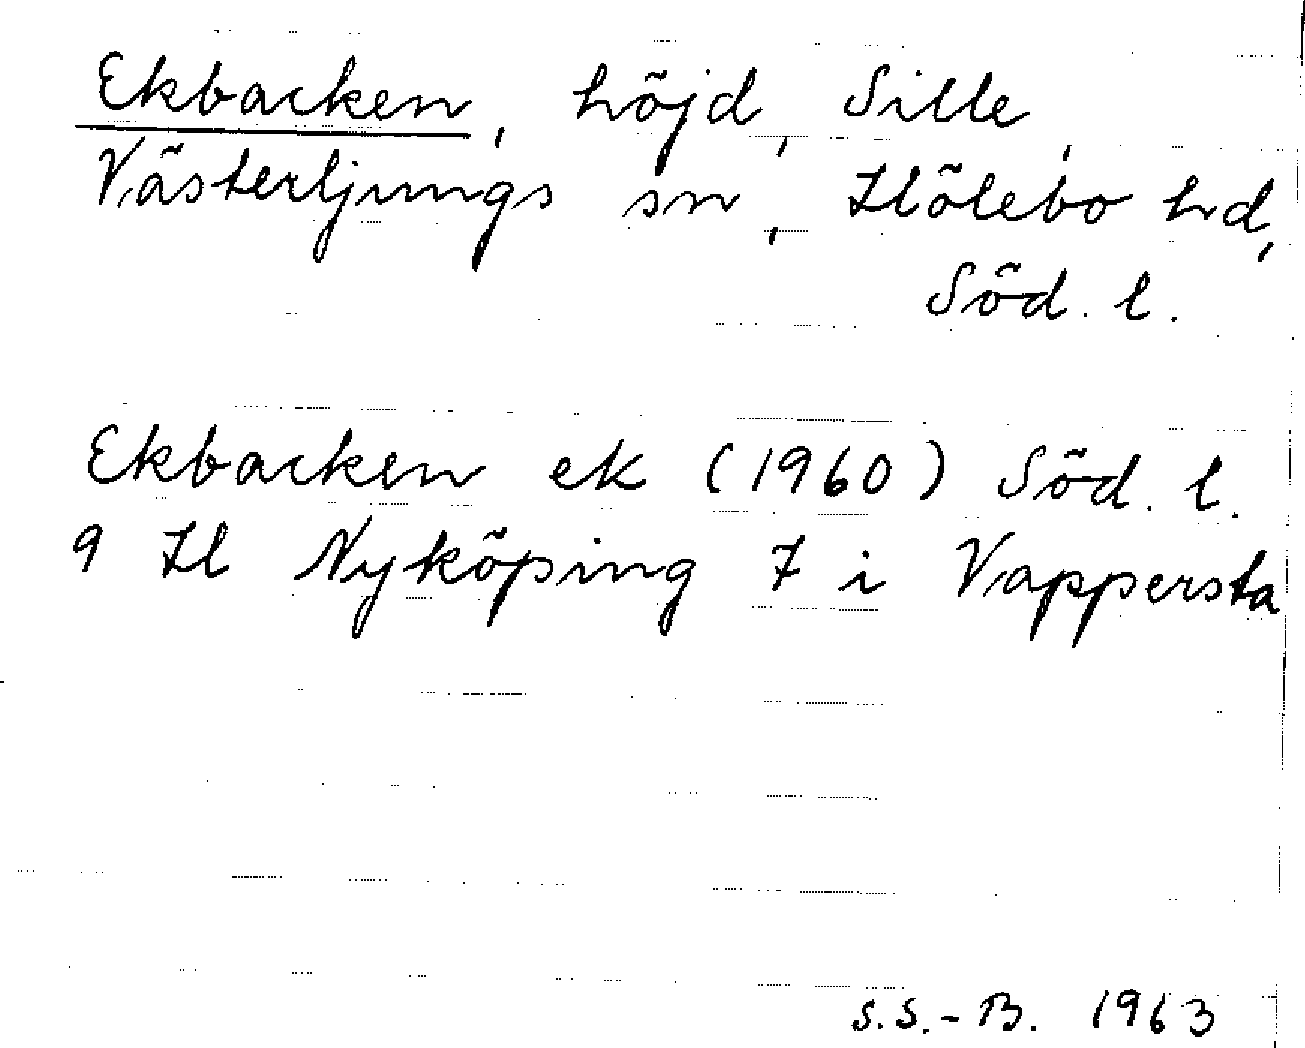 Ekbacken, höjd, Sille,
Västerljungs sn, Hölebo hd,
Söd. l.
Ekbacken ek (1960) Söd. l.
9 H Nyköping 7 i Vappersta
S.S.-B. 1963